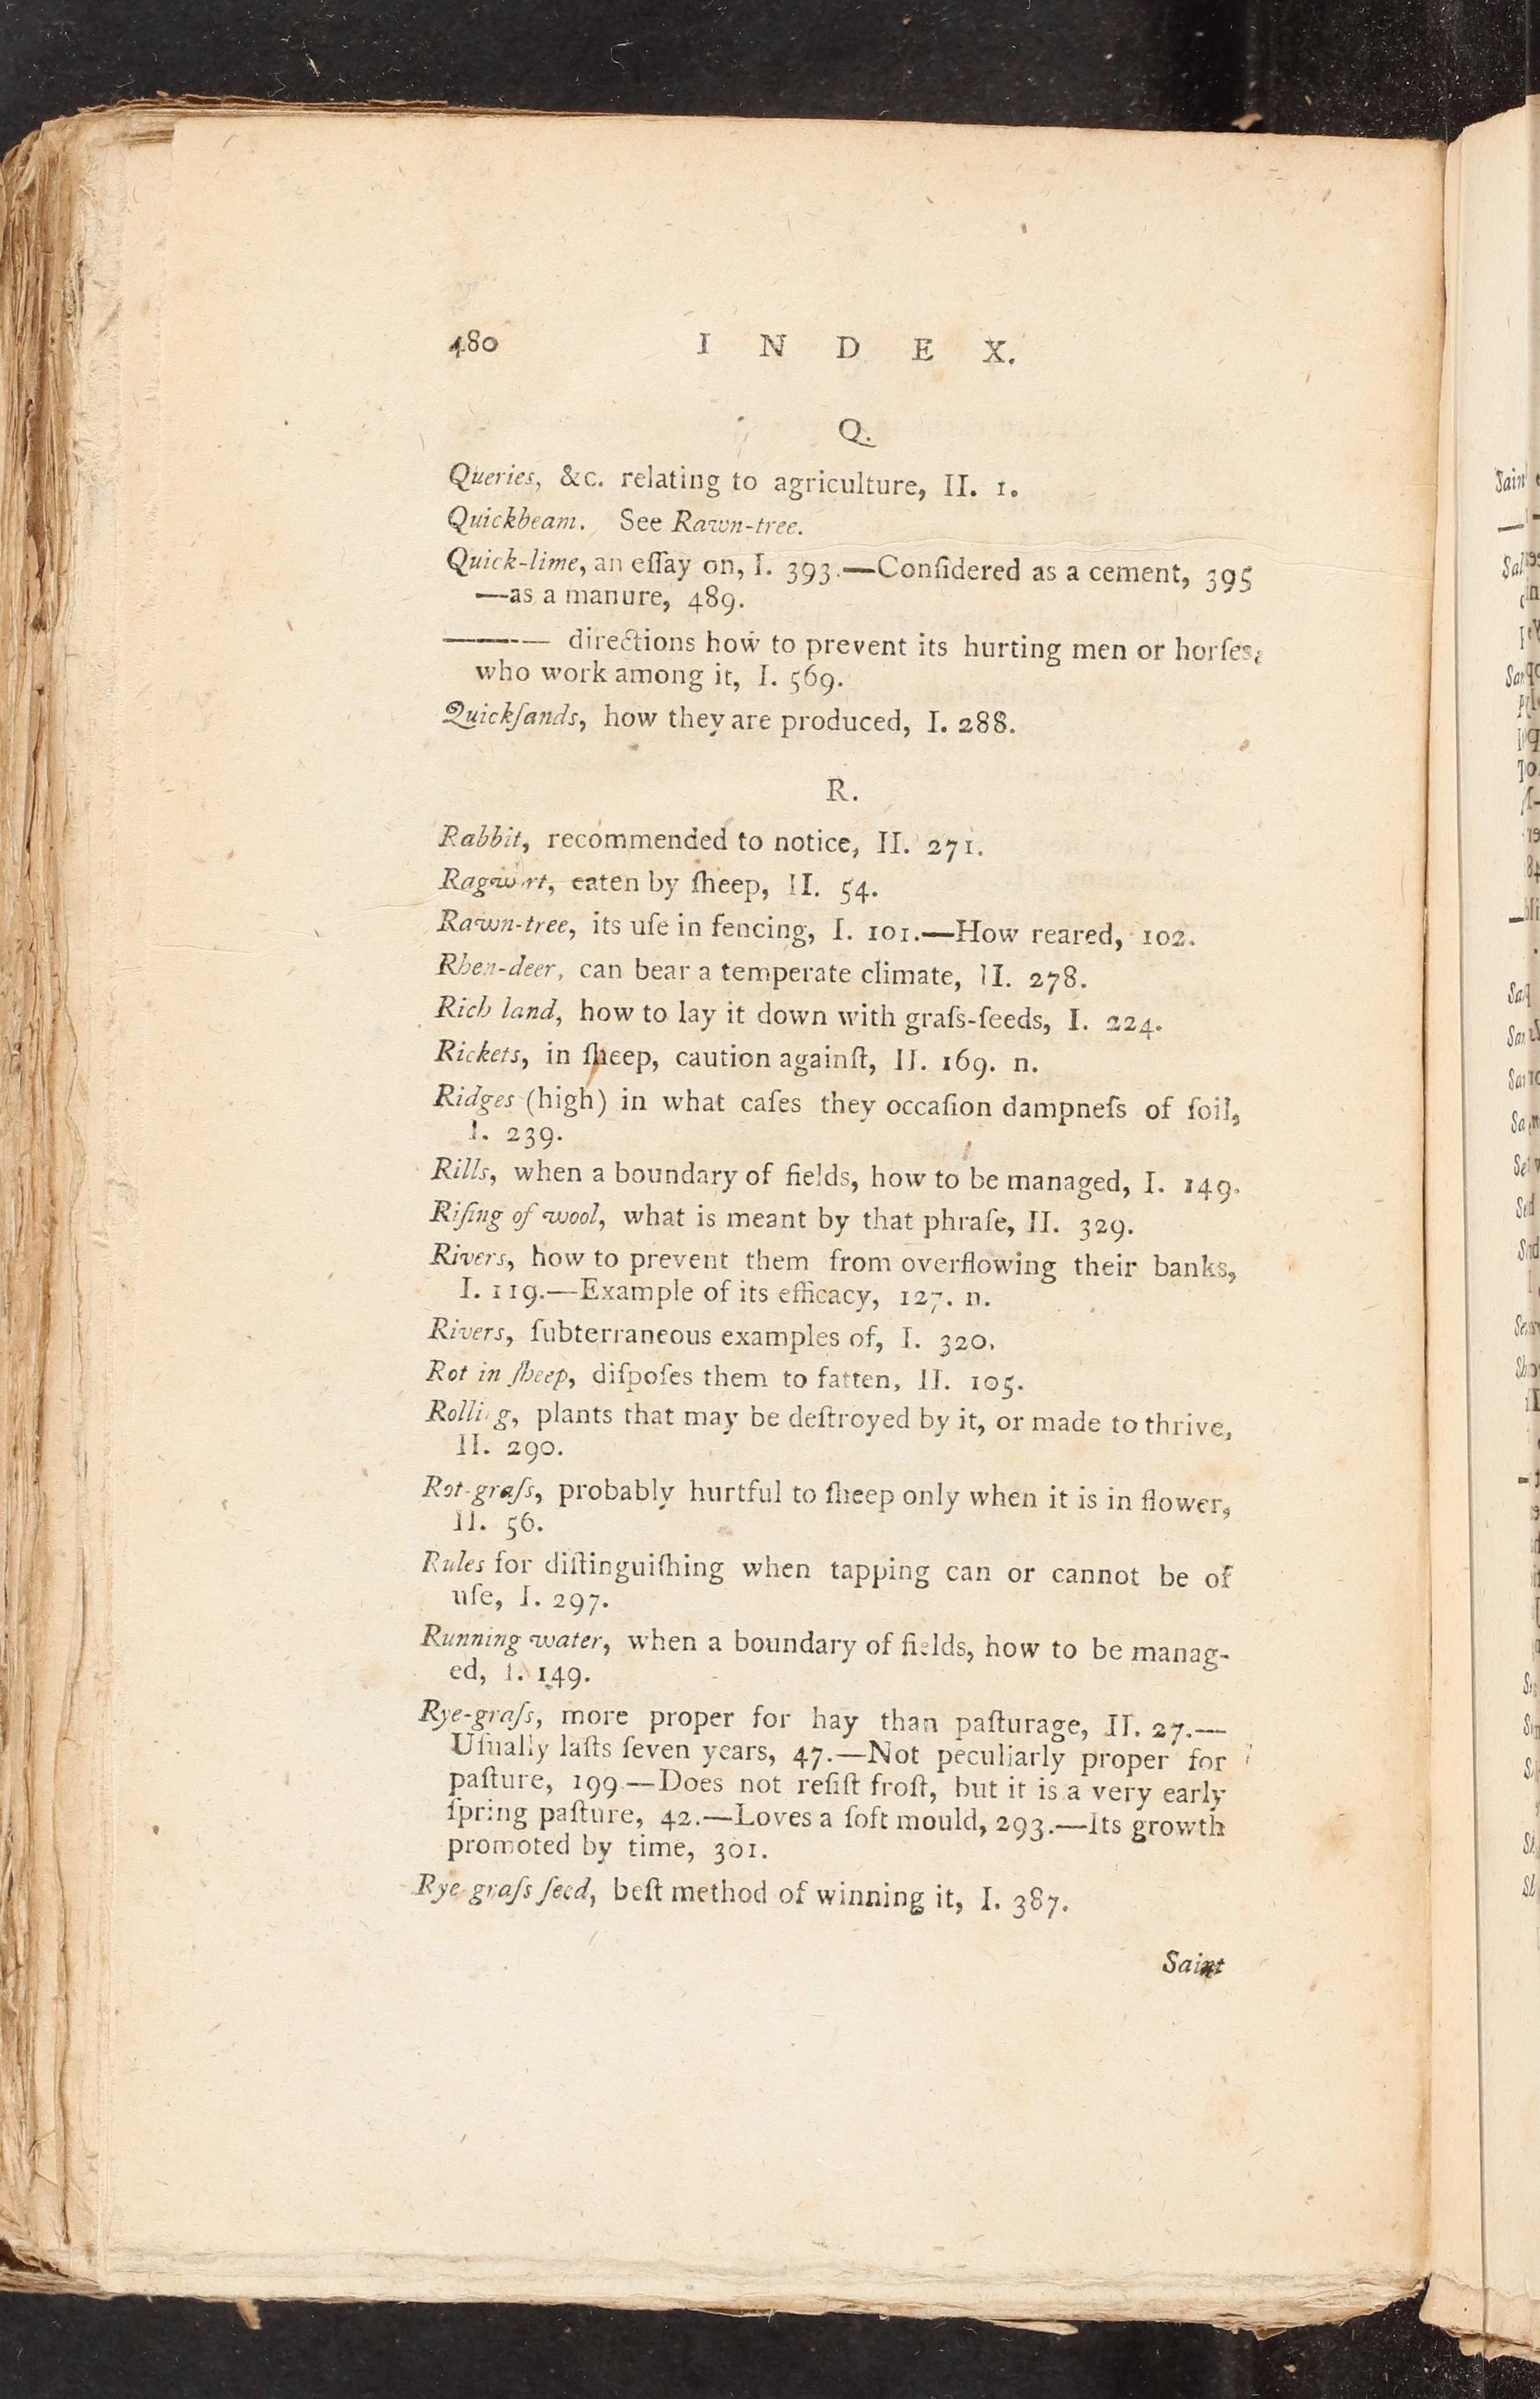 480 I N D E X.
Q.
Queries, &c. relating to agriculture, II. 1.
Quickbeam. See Rawn-tree.
Quick-lime, an eſſay on, I. 393.—Conſidered as a cement, 395
—as a manure, 489.
——— directions how to prevent its hurting men or horſes,
who work among it, I. 569.
Quickſands, how they are produced, I. 288.
R.
Rabbit, recommended to notice, II. 271.
Ragwort, eaten by ſheep, II. 54.
Rawn-tree, its uſe in fencing, I. 101.—How reared, 102.
Rhen-deer, can bear a temperate climate, II. 278.
Rich land, how to lay it down with graſs-ſeeds, I. 224.
Rickets, in ſheep, caution againſt, II. 169. n.
Ridges (high) in what caſes they occaſion dampneſs of ſoil,
I. 239.
Rills, when a boundary of fields, how to be managed, I. 149.
Riſing of wool, what is meant by that phraſe, II. 329.
Rivers, how to prevent them from overflowing their banks,
I. 119.—Example of its efficacy, 127. n.
Rivers, ſubterraneous examples of, I. 320.
Rot in ſheep, diſpoſes them to fatten, II. 105.
Rolling, plants that may be deſtroyed by it, or made to thrive,
II. 290.
Rot-graſs, probably hurtful to ſheep only when it is in flower,
II. 56.
Rules for diſtinguiſhing when tapping can or cannot be of
uſe, I. 297.
Running water, when a boundary of fields, how to be manag-
ed, I. 149.
Rye-graſs, more proper for hay than paſturage, II. 27.—
Uſually laſts ſeven years, 47.—Not peculiarly proper for
paſture, 199.—Does not reſiſt froſt, but it is a very early
ſpring paſture, 42.—Loves a ſoft mould, 293.—Its growth
promoted by time, 301.
Rye graſs ſeed, beſt method of winning it, I. 387.
Saint